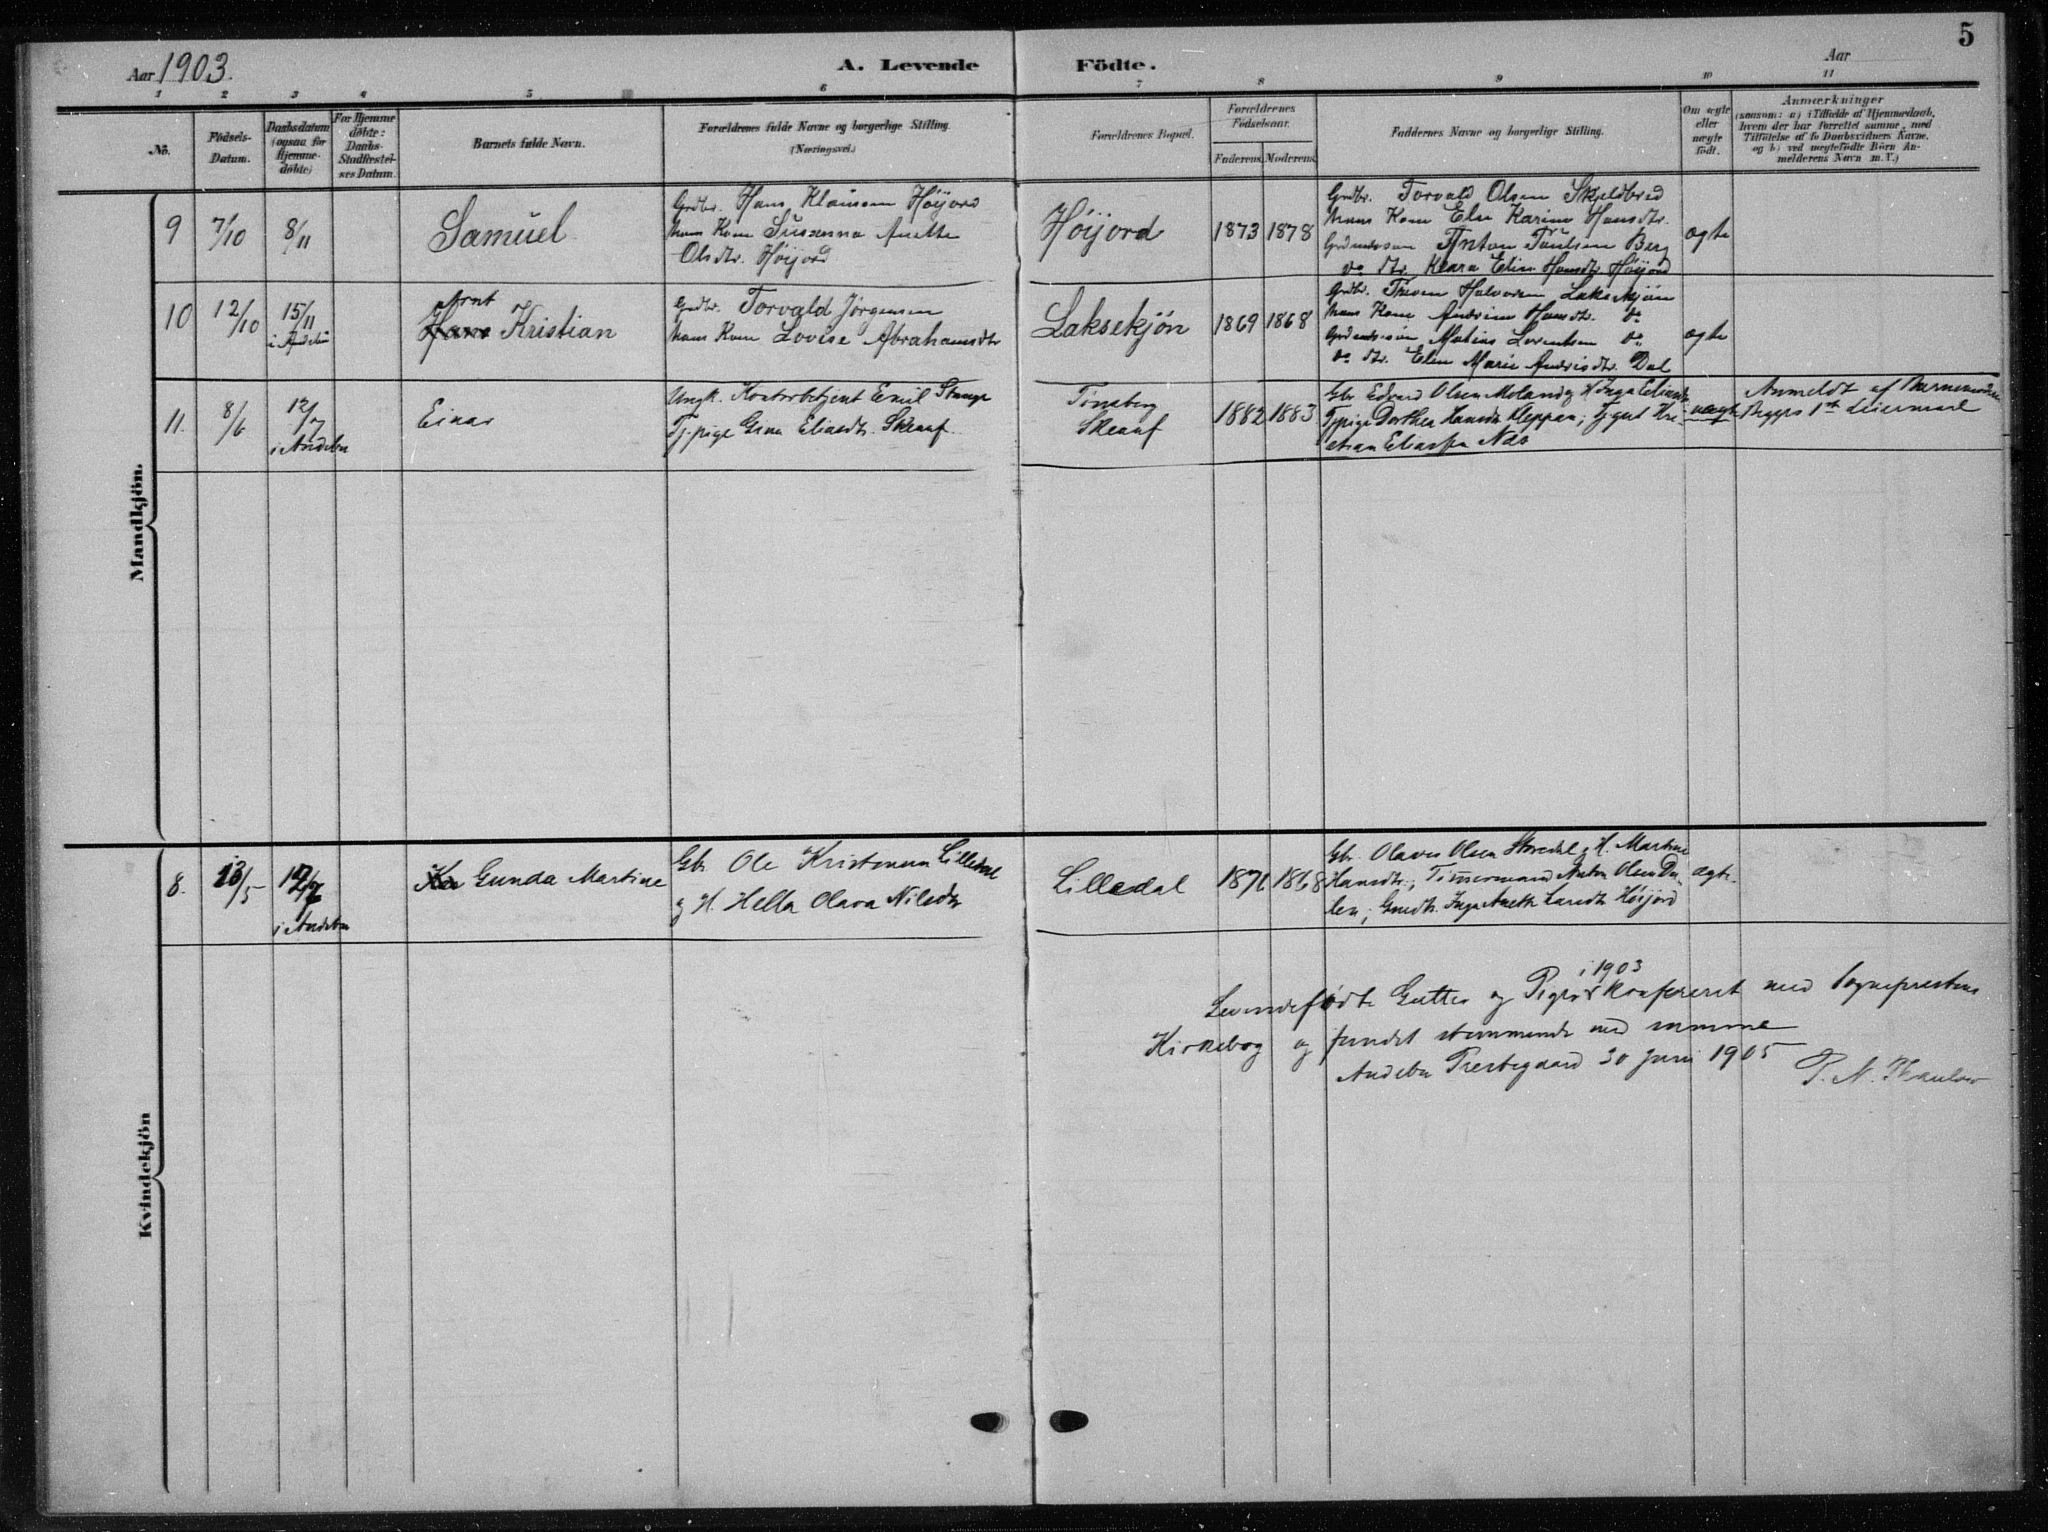 5
Aar 1903.
A. Levende
Födte.
Aar
1 2 3 4 5 6 7 8 9 10 11
No.
Födsels-
Datum.
Daabsdatum
(ogsaa for
Hjemme-
döbte)
For Hjemme-
döbte:
Daabs-
Stadfæstel-
ses Datum.
Barnets fulde Navn.
Forældrenes fulde Navne og borgerlige Stilling.
(Næringsvei.)
Forældrenes Bopæl.
Forældrenes
Födselsaar.
Faderens. Moderens.
Faddernes Navne og borgerlige Stilling.
Om ægte
eller
uægte
født.
Anmærkninger
(saasom: a) i Tilfælde af Hjemmedaab,
hvem der har forrettet samme, med
Tilföielse af to Daabsvidners Navne.
og b) ved uægtefödte Börn An-
melderens Navn m. V.)
Mandkjön.
9
7/10
8/11
Samuel
Grdbr. Hans Klausen Höijord
hans Kone Sussanna Anette
Olsdtr. Höijord
Höijord
1873 1878
Grdbr. Torvald Olsen Skjeldbred
hans Kone Else Karine Hansdtr.
Grdmandssøn Anton Paulsen Berg
do dtr. Klara Eline Hansdtr. Höijord
ægte
10
12/10
15/11
i Andebu
Arnt
Hans Kristian
Grdbr. Torvald Jørgensen
hans Kone Lovise Abrahamsdtr
Laksekjön
1869 1868
Grdbr. Halvorsen Laksekjön
hans Kone Andrine Hansdtr. do
Grdmandssøn Matias Lorentsen do
do dtr. Elen Marie Andrisdtr. Dal
ægte
11.
8/6
12/7
i Andebu
Einar
Ungk. Kontorbetjent Emil Stange
Tj.pige Eliasdtr. Skrauf.
Tønsberg
Skrauf
1882 1883
Gbr Edvard Olsen Moland og H. Inga Eliasdtr
Tjpige Dorthea Hansdtr Kleppan; Kri-
stian Eliassen Nds
uægte
Anmeldt af Barnemoderen
Begges 1ste Leiermaal
Kvindekjön
8.
13/5
12/7
i Andebu
Gunda Martine
Gbr Ole Kristensen Lilledal
og H. Hella Olava Nilsdtr
Lilledal
1871 1868
Gbr. Olaves Olsen Storedal og H. Martine
Hansdtr; Tømmermand Anton Olsen Da-
len; Gmdtr. Inga Anette Larsdtr Höijord
ægte
i 1903
Levendefødte Gutter og Piger konfereret med Sogneprestens
Kirkebog og fundet stemmende med samme
Andebu Prestegaard 30 juni 1905
P. N. Thaulow